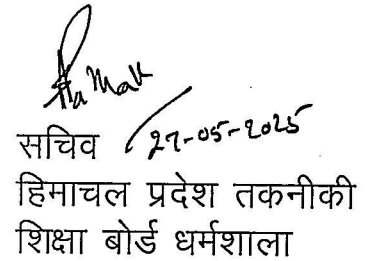 सचिव 27-05-2025
हिमाचल प्रदेश तकनीकी
शिक्षा बोर्ड धर्मशाला